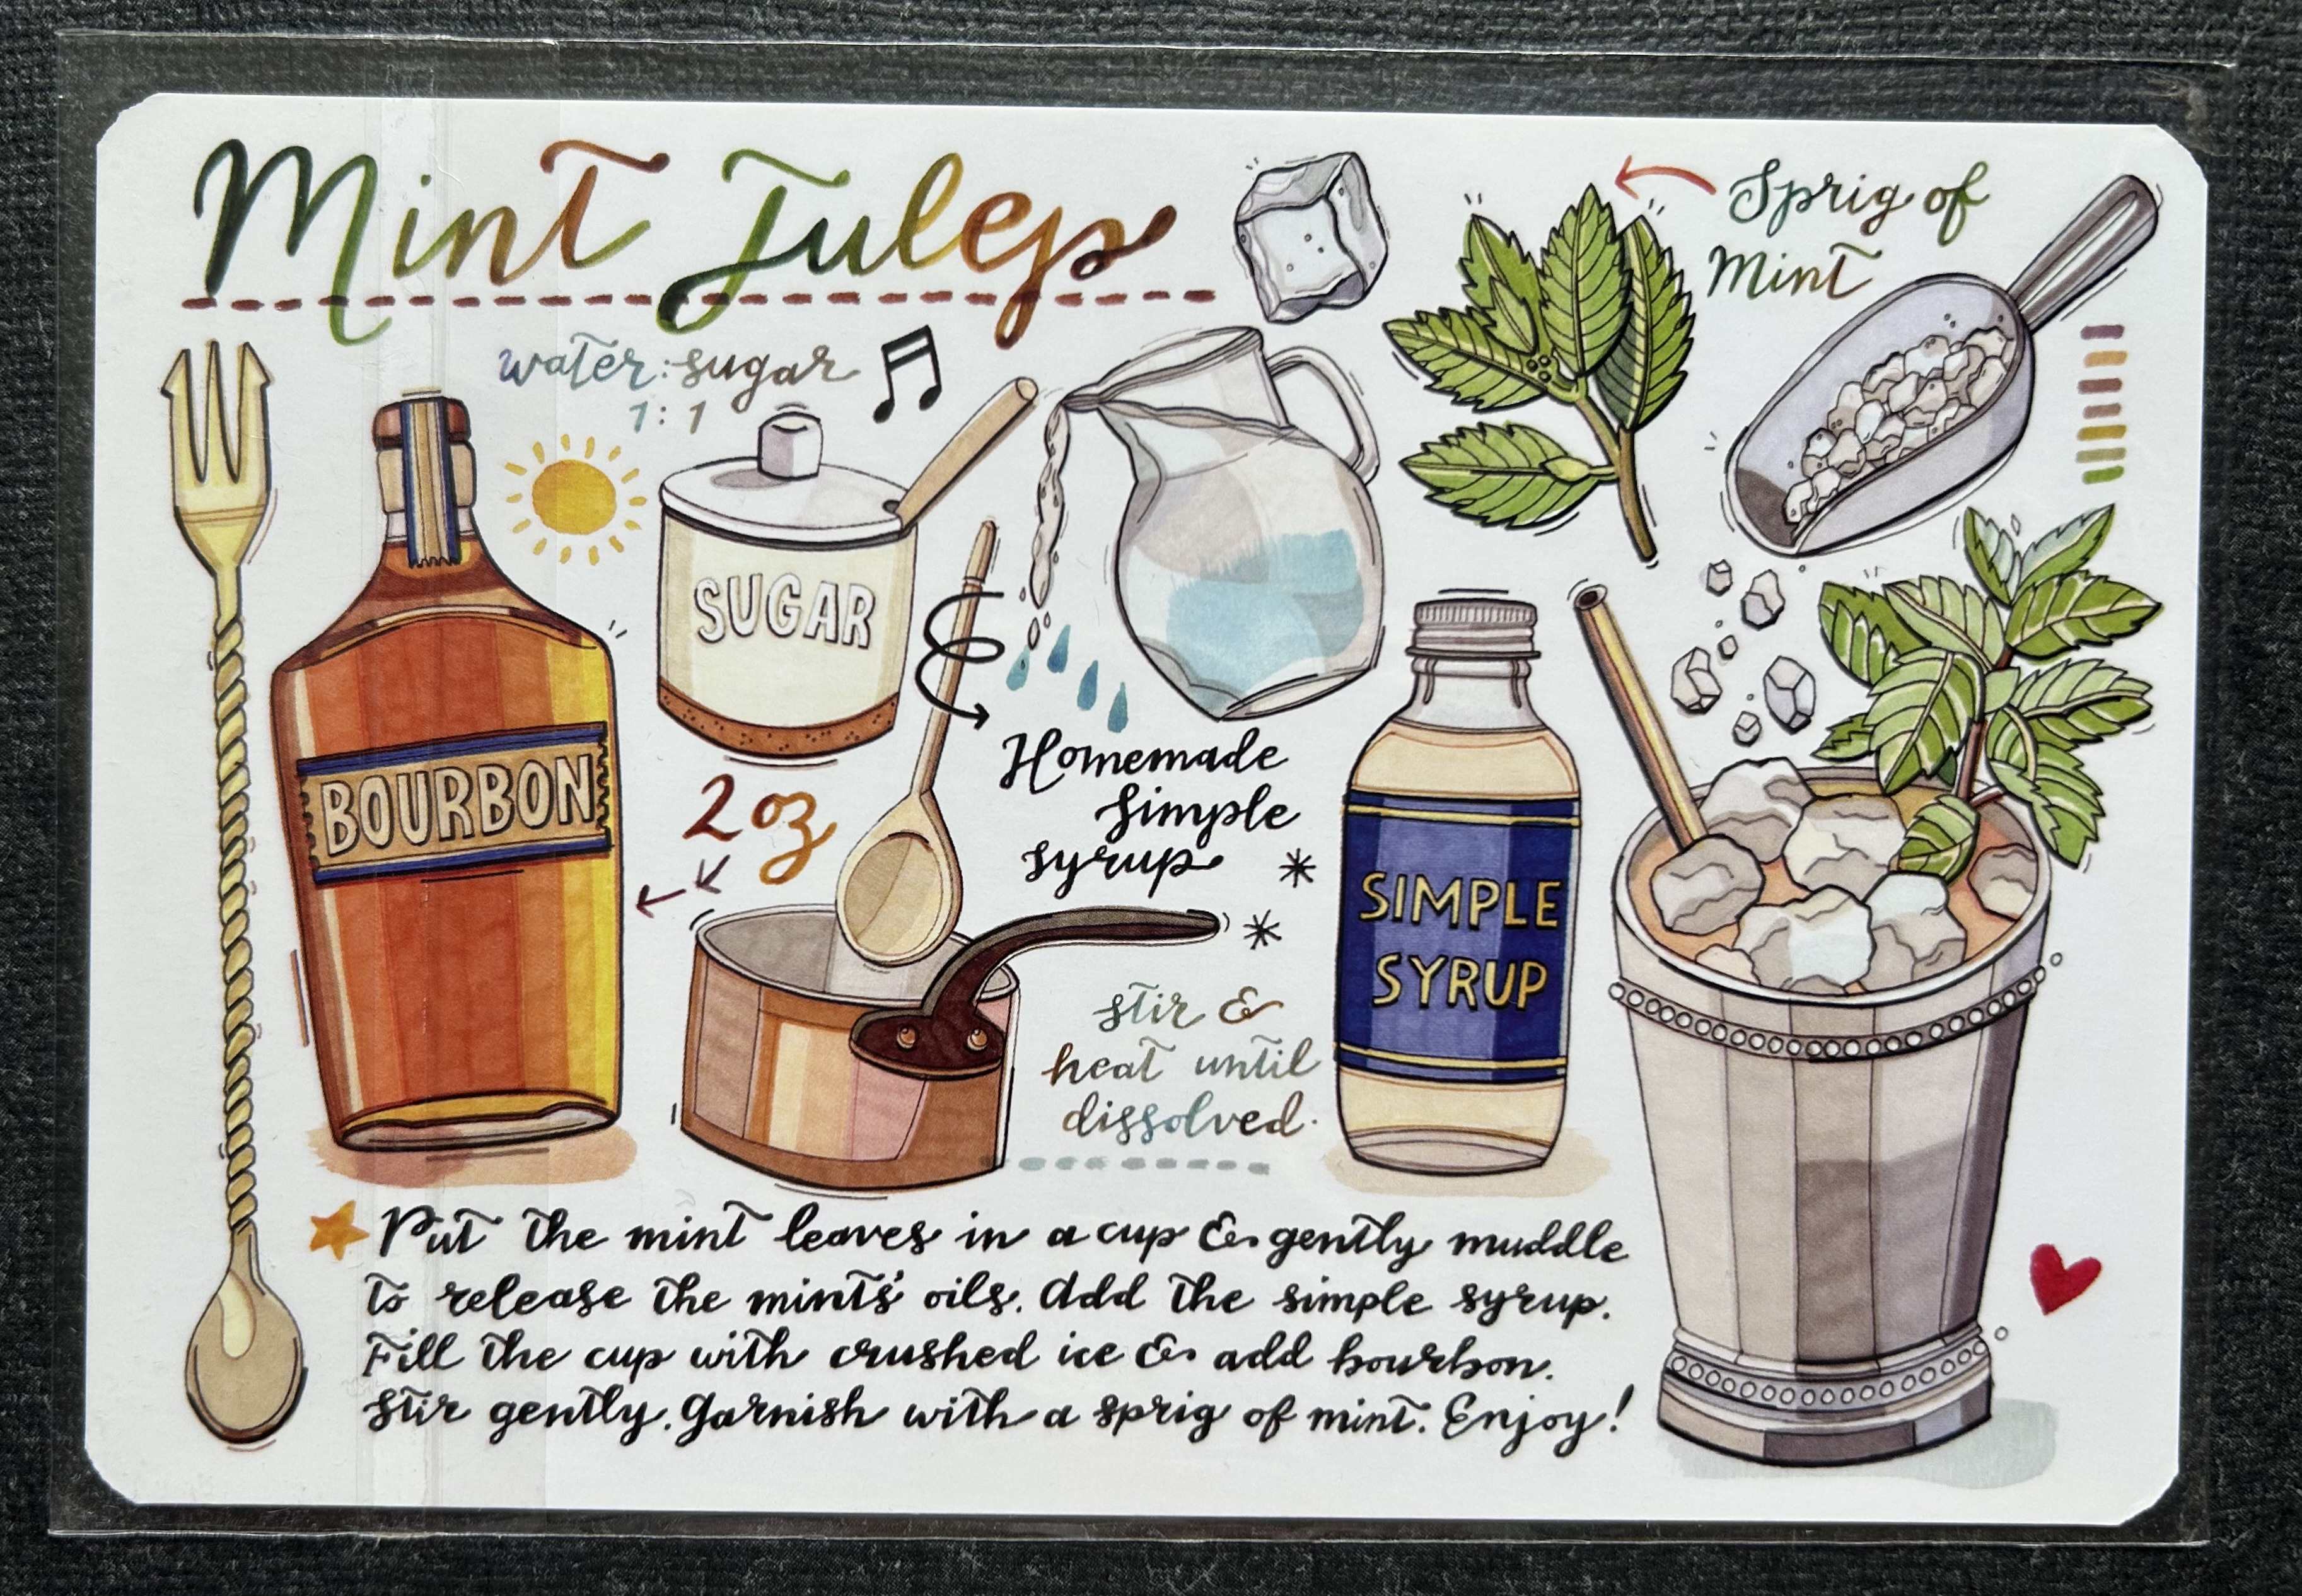 Mint Julep
Sprig of
Mint
water:sugar
1:1
SUGAR
BOURBON
2 oz
Homemade
simple
syrup
SIMPLE
SYRUP
stir &
heat until
dissolved.
Put the mint leaves in a cup & gently muddle
to release the mints' oils. Add the simple syrup.
Fill the cup with crushed ice & add bourbon.
Stir gently. Garnish with a sprig of mint. Enjoy!